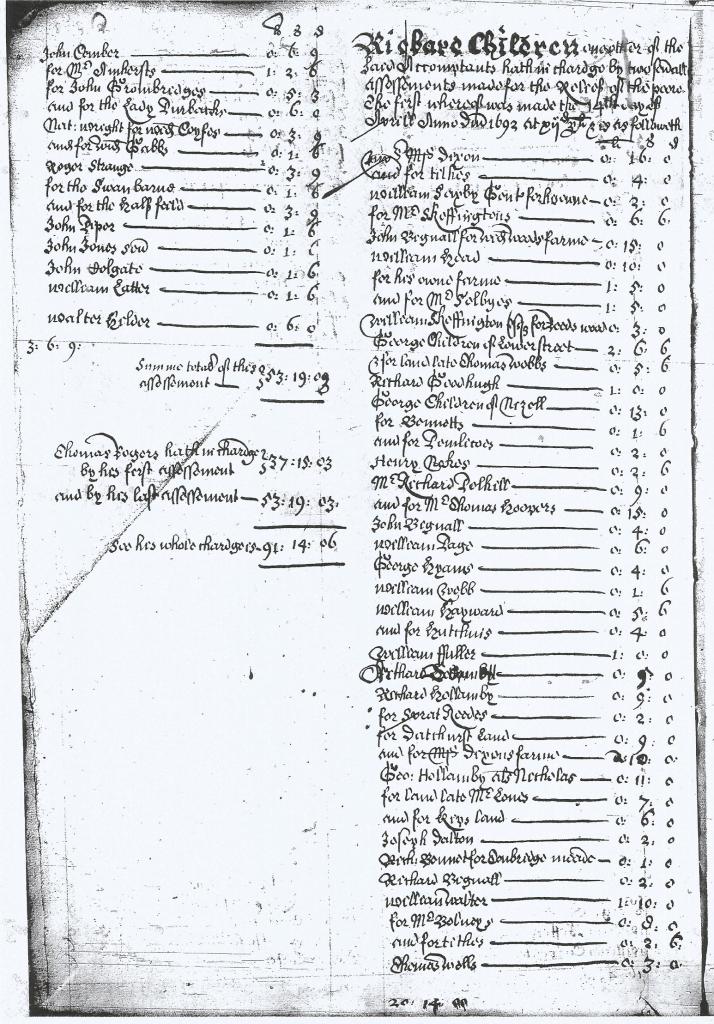 £ s d
John Comber 0: 6: 9
for Mr Amhersts 1: 2: 6
for John Crombredges 0: 5: 3
and for the Lady 0: 6: 0
Nat: wright for 0: 3: 9
and for wid Gabbs 0: 1: 6
Roger Strange 0: 3: 9
for the Swan barne 0: 1: 6
and for the half feild 0: 3: 9
John Piper 0: 1: 6
John Jones 0: 1: 6
John Holgate 0: 1: 6
william Latter 0: 1: 6
walter Hilder 0: 6: 0
3: 6: 9:
Summe totall of this
assessment 53: 19: 03
Thomas Rogers hath in chardge
by his first assessment 37: 15: 03
and by his last assessment 53: 19: 03
Soe his whole chardge is 91: 14: 06
Richard Children another of the
said Accomptants hath in chardge by two severall
assessments made for the Releif of the poore
The first whereof was made the 14th day of
Aprill Anno Dni 1692 at as followeth
£ s d
Mrs Dixon 0: 16: 0
and for tithes 0: 4: 0
william Saxby Gent for his owne 0: 2: 0
for Mr Skeffingtons 0: 6: 6
John Begnall for farme 0: 15: 0
william Head 0: 10: 0
for his owne farme 1: 5: 0
and for Mr Selbyes 1: 5: 0
William Skeffington for Reeds wood 0: 3: 0
George Children of Lowerstreet 2: 6: 6
for land late Thomas webbs 0: 5: 6
Richard Goodhugh 1: 0: 0
George Children of Nizell 0: 13: 0
for Bennetts 0: 1: 6
and for 0: 2: 0
Henry 0: 2: 6
Mr Richard Polhill 0: 9: 0
and for Mr Thomas Hoopers 0: 15: 0
John Begnall 0: 4: 0
william Page 0: 6: 0
George Hyams 0: 4: 0
william Webb 0: 1: 6
william Hayward 0: 5: 6
and for 0: 4: 0
William ffuller 1: 0: 0
Richard 0: 9: 0
Richard Hollamby 0: 9: 0
for Sprat Reedes 0: 2: 0
for Datthurst Land 0: 9: 0
and for Mrs Dixons farme
Geo: Hollamby als Nicholas 0: 11: 0
for land late Mr Lones 0: 7: 0
and for Keys land 0: 6: 0
Joseph Dalton 0: 2: 0
Rich: Bennet for Tonbridge meade 0: 1: 0
Richard Begnall 0: 2: 0
william walter 1: 10: 0
for Mr 0: 8: 0
and for tithes 0: 2: 6
Thomas wells 0: 3: 0
20: 14: